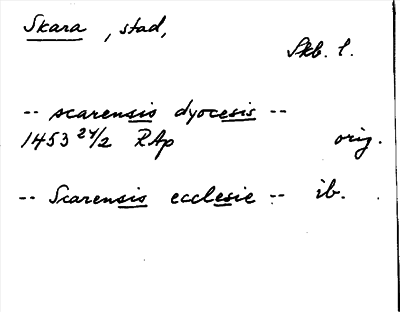 Skara, stad,
Skb. l.
-- scarensis dyocesis --
1453 24/2 RAp orig.
-- Scarensis ecclesie -- ib.